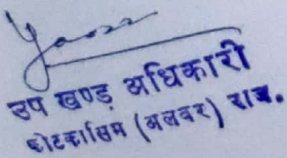 उप खण्ड अधिकारी
कोटकासिम (अलवर) राज.